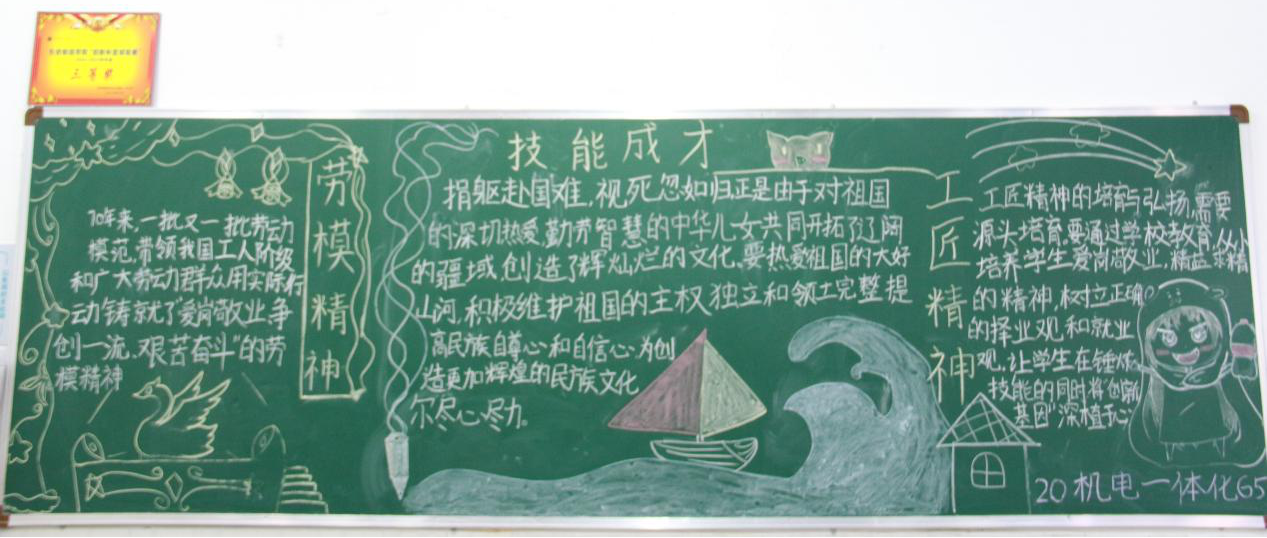 三等奖
劳模精神
70年来,一批又一批劳动
模范,带领我国工人阶级
和广大劳动群众用实际行
动铸就了"爱岗敬业、争
创一流、艰苦奋斗"的劳
模精神
技能成才
捐躯赴国难,视死忽如归正是由于对祖国
的深切热爱,勤劳智慧的中华儿女共同开拓了辽阔
的疆域,创造了辉灿烂的文化,要热爱祖国的大好
山河,积极维护祖国的主权独立和领土完整提
高民族自尊心和自信心为创
造更加辉煌的民族文化
尔尽心尽力。
工匠精神
工匠精神的培育与弘扬,需要
源头培育,要通过学校教育,从小
培养学生爱岗敬业,精益求精
的精神,树立正确
的择业观和就业
观,让学生在锤炼
技能的同时将"创新
基因"深植于心
20机电一体化65